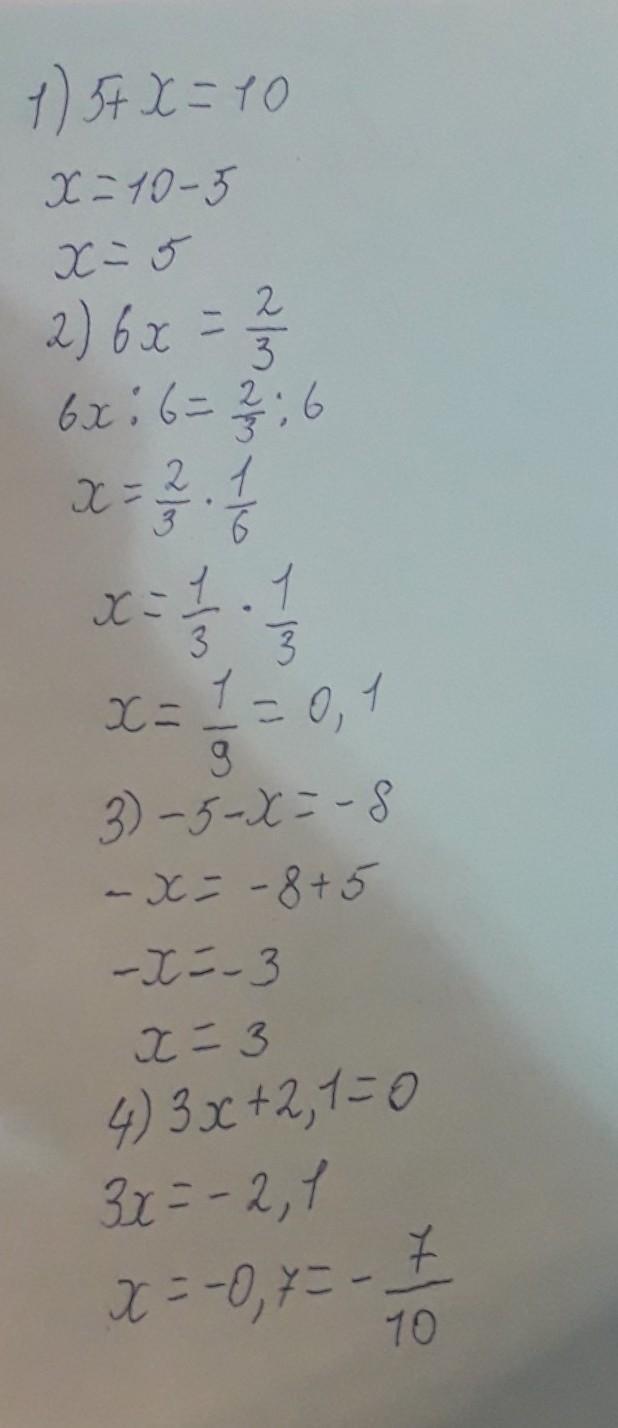 1) 5+x=10
x=10-5
x=5
2) 6x = 2/3
6x:6= 2/3 :6
x= 2/3 · 1/6
x= 1/3 · 1/3
x= 1/9 = 0,1
3) -5-x=-8
-x= -8+5
-x=-3
x=3
4) 3x+2,1=0
3x=-2,1
x=-0,7=- 7/10